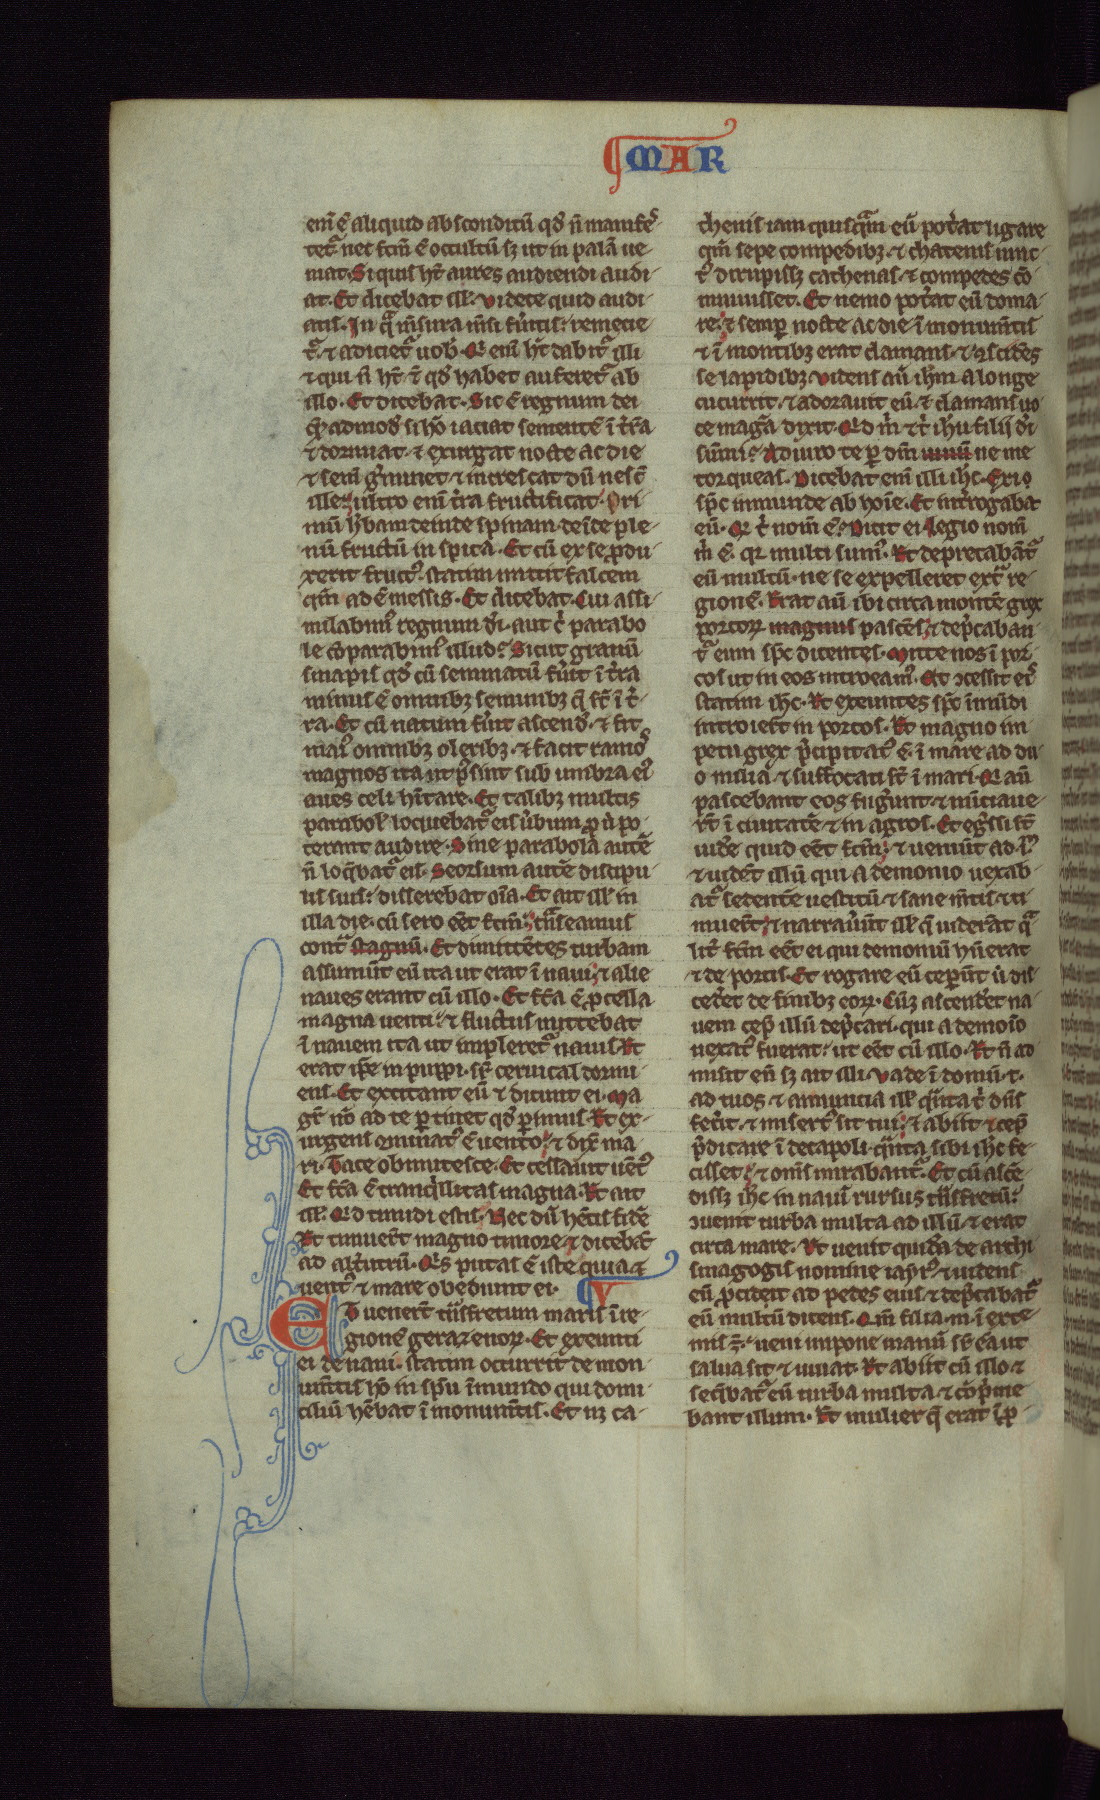 MAR
em̄ ē aliquid absconditū qd̄ n̄ manifes
tet᷑ nec fc̄m ē occultū sꝫ ut in palā ue
niat. Si quis hꝫ aures audiendi audi
at. Et dicebat ill. Videte quid audi
atis. In q̄ m̄sura m̄si fūitis: remecie
t᷑. ⁊ adiciet᷑ uob̄. Qi em̄ hꝫ dabit᷑ illi
⁊ qui n̄ hꝫ ⁊ qd̄ habet auferet᷑ ab
illo. Et dicebat. Sic ē regnum dei
quēadmod̄ si hō iaciat sementē ī t̄ra
⁊ dormiat. ⁊ exurgat nocte ac die
⁊ sem̄ ḡminet ⁊ increscat dū nescit
ille. ultro em̄ t̄ra fructificat. Pri
mū h̄bam deinde spicam. deīde ple
nū fructū in spica. Et cū ex se ꝓdu
xerit fruct᷒. statim mittit falcem
qm̄ adē messis. Et dicebat. Cui assi
milabim᷒ regnum d̄i. aut c̄ parabo
le cōparabim᷒ illud? Sicut granū
sinapis qd̄ cū seminatū fūit ī t̄ra
minus ē omnibꝫ seminibꝫ q̄ st̄ ī t̄
ra. Et cū natum fūit ascend̄. ⁊ fit
mai᷒ omnibꝫ oleribꝫ. ⁊ facit ramos
magnos ita ut p̄sint sub umbra ei᷒
aues celi hītare. Et talibꝫ multis
parabol̄ loquebat᷑ eis ūbum. ꝓ ū po
terant audire. Sine parabola autē
n̄ loq̄bat᷑ eis. Seorsum autē discipu
lis suis: disserebat oīa. Et ait ill in
illa die. cū sero eēt fc̄m: tn̄seamus
cont᷑ stagnū. Et dimittētes turbam
assumūt eū ita ut erat ī naui: ⁊ alie
naues erant cū illo. Et fc̄a ē ꝓcella
magna uenti: ⁊ fluctus mittebat
ī nauem ita ut impleret᷑ nauis. Et
erat ip̄e in puppi. sr̄ ceruical dormi
ens. Et excitant eū ⁊ dicunt ei. Ma
gr̄ nō ad te ꝑtinet qd̄ ꝑimus. Et ex
urgens ominat᷒ ē uento: ⁊ dix̄ ma
ri. Tace obmutesce. Et cessauit uēt᷒
Et fc̄a ē tranq̄llitas magna. Et ait
ill. Qd timidi estis. Nec dū hētis fidē
Et timuert̄ magno timore ⁊ dicebāt
ad alt̄utrū. Qis putas ē iste quia ⁊
uent᷒ ⁊ mare obediunt ei. V
Et venert̄ tn̄sfretum maris ī re
gionē gerazenoꝝ. Et exeunti
ei de naui. statim occurrit de mon
um̄tis hō in sp̄u īmundo qui domi
cilium hēbat ī monum̄tis. Et nꝫ ca
thenis iam quisq̄m eū pot̄at ligare
qm̄ sepe compedibꝫ ⁊ chatenis uinc
t᷒ dirupissꝫ cathenas. ⁊ compedes cō
minuisset. Et nemo pot̄at eū doma
re: ⁊ semꝑ nocte ac die ī monum̄tis
⁊ ī montibꝫ erat clamans. ⁊ ꝯcidēs
se lapidibꝫ. Videns aū ihm a longe
cucurrit. ⁊ adorauit eū. ⁊ clamans uo
ce magā dixit. Qd m̄ ⁊ t̄ ihū filii d̄i
sūmi? Adiuro te ꝑ dm̄ uiuū ne me
torqueas. Dicebat em̄ illi ihc̄. Exi
sp̄c inmunde ab hoīe. Et int̄rogabat
eū. Qi t̄ nom̄ ē? Dicit ei. Legio nom̄
m̄ ē. qr multi sum᷒. Et deprecabat᷑
eū multū. ne se expelleret ext᷑ re
gionē. Erat aū ibi circa montē grex
porcoꝝ magnus pascēs. ⁊ dep̄caban
t᷑ eum sp̄c dicentes. Mitte nos ī por
cos ut in eos introeam᷒. Et ꝯcessit ei᷒
statim ihc̄. Et exeuntes sp̄c īmūdi
introiert̄ in porcos. Et magno im
petu grex p̄cipitat᷒ ē ī mare ad du
o milia. ⁊ suffocati st̄ ī mari. Qi aū
pascebant eos fug̃unt. ⁊ nūciaue
rt̄ ī ciuitatē ⁊ in agros. Et eḡssi st̄
uid̄e quid eēt fc̄m: ⁊ ueniūt ad ih᷒
⁊ uidēt illū qui a demonio uexab
at᷑ sedentē uestitū ⁊ sane m̄tis. ⁊ ti
muert̄: ⁊ narrauūt ill q̄ uiderāt q̄
lit̄ fc̄m eēt ei qui demoniū hūerat
⁊ de porcis. Et rogare eū ceperūt ū dis
ced̄et de finibꝫ eoꝝ. Cūqꝫ ascend̄et na
uem cep̄ illū dep̄cari. qui a demoīo
uexat᷒ fuerat: ut eēt cū illo. Et n̄ ad
misit eū sꝫ ait illi. Vade ī domū t.
ad tuos. ⁊ annuncia ill q̄nta t̄ dn̄s
fec̄it. ⁊ misert᷒ sit tui: ⁊ abiit ⁊ cep̄
p̄dicare ī decapoli. q̄nta sibi ihc̄ fe
cisset: ⁊ om̄s mirabant᷑. Et cū ascē
dissꝫ ihc̄ in nauī rursus tn̄sfretū:
ꝯuenit turba multa ad illū. ⁊ erat
circa mare. Et uenit quidā de archi
sinagogis nomine iayr᷒. ⁊ uidens
eū. ꝓcidēit ad pedes eius. ⁊ dep̄cabat᷑
eū multū dicens. Qm̄ filia. m. ī extre
mis ē. ueni impone manū sr̄ eā ut
salua sit ⁊ uiuat. Et abiit cū illo. ⁊
seq̄bat᷑ eū turba multa ⁊ cōp̄me
bant illum. Et mulier q̄ erat ī ꝓ